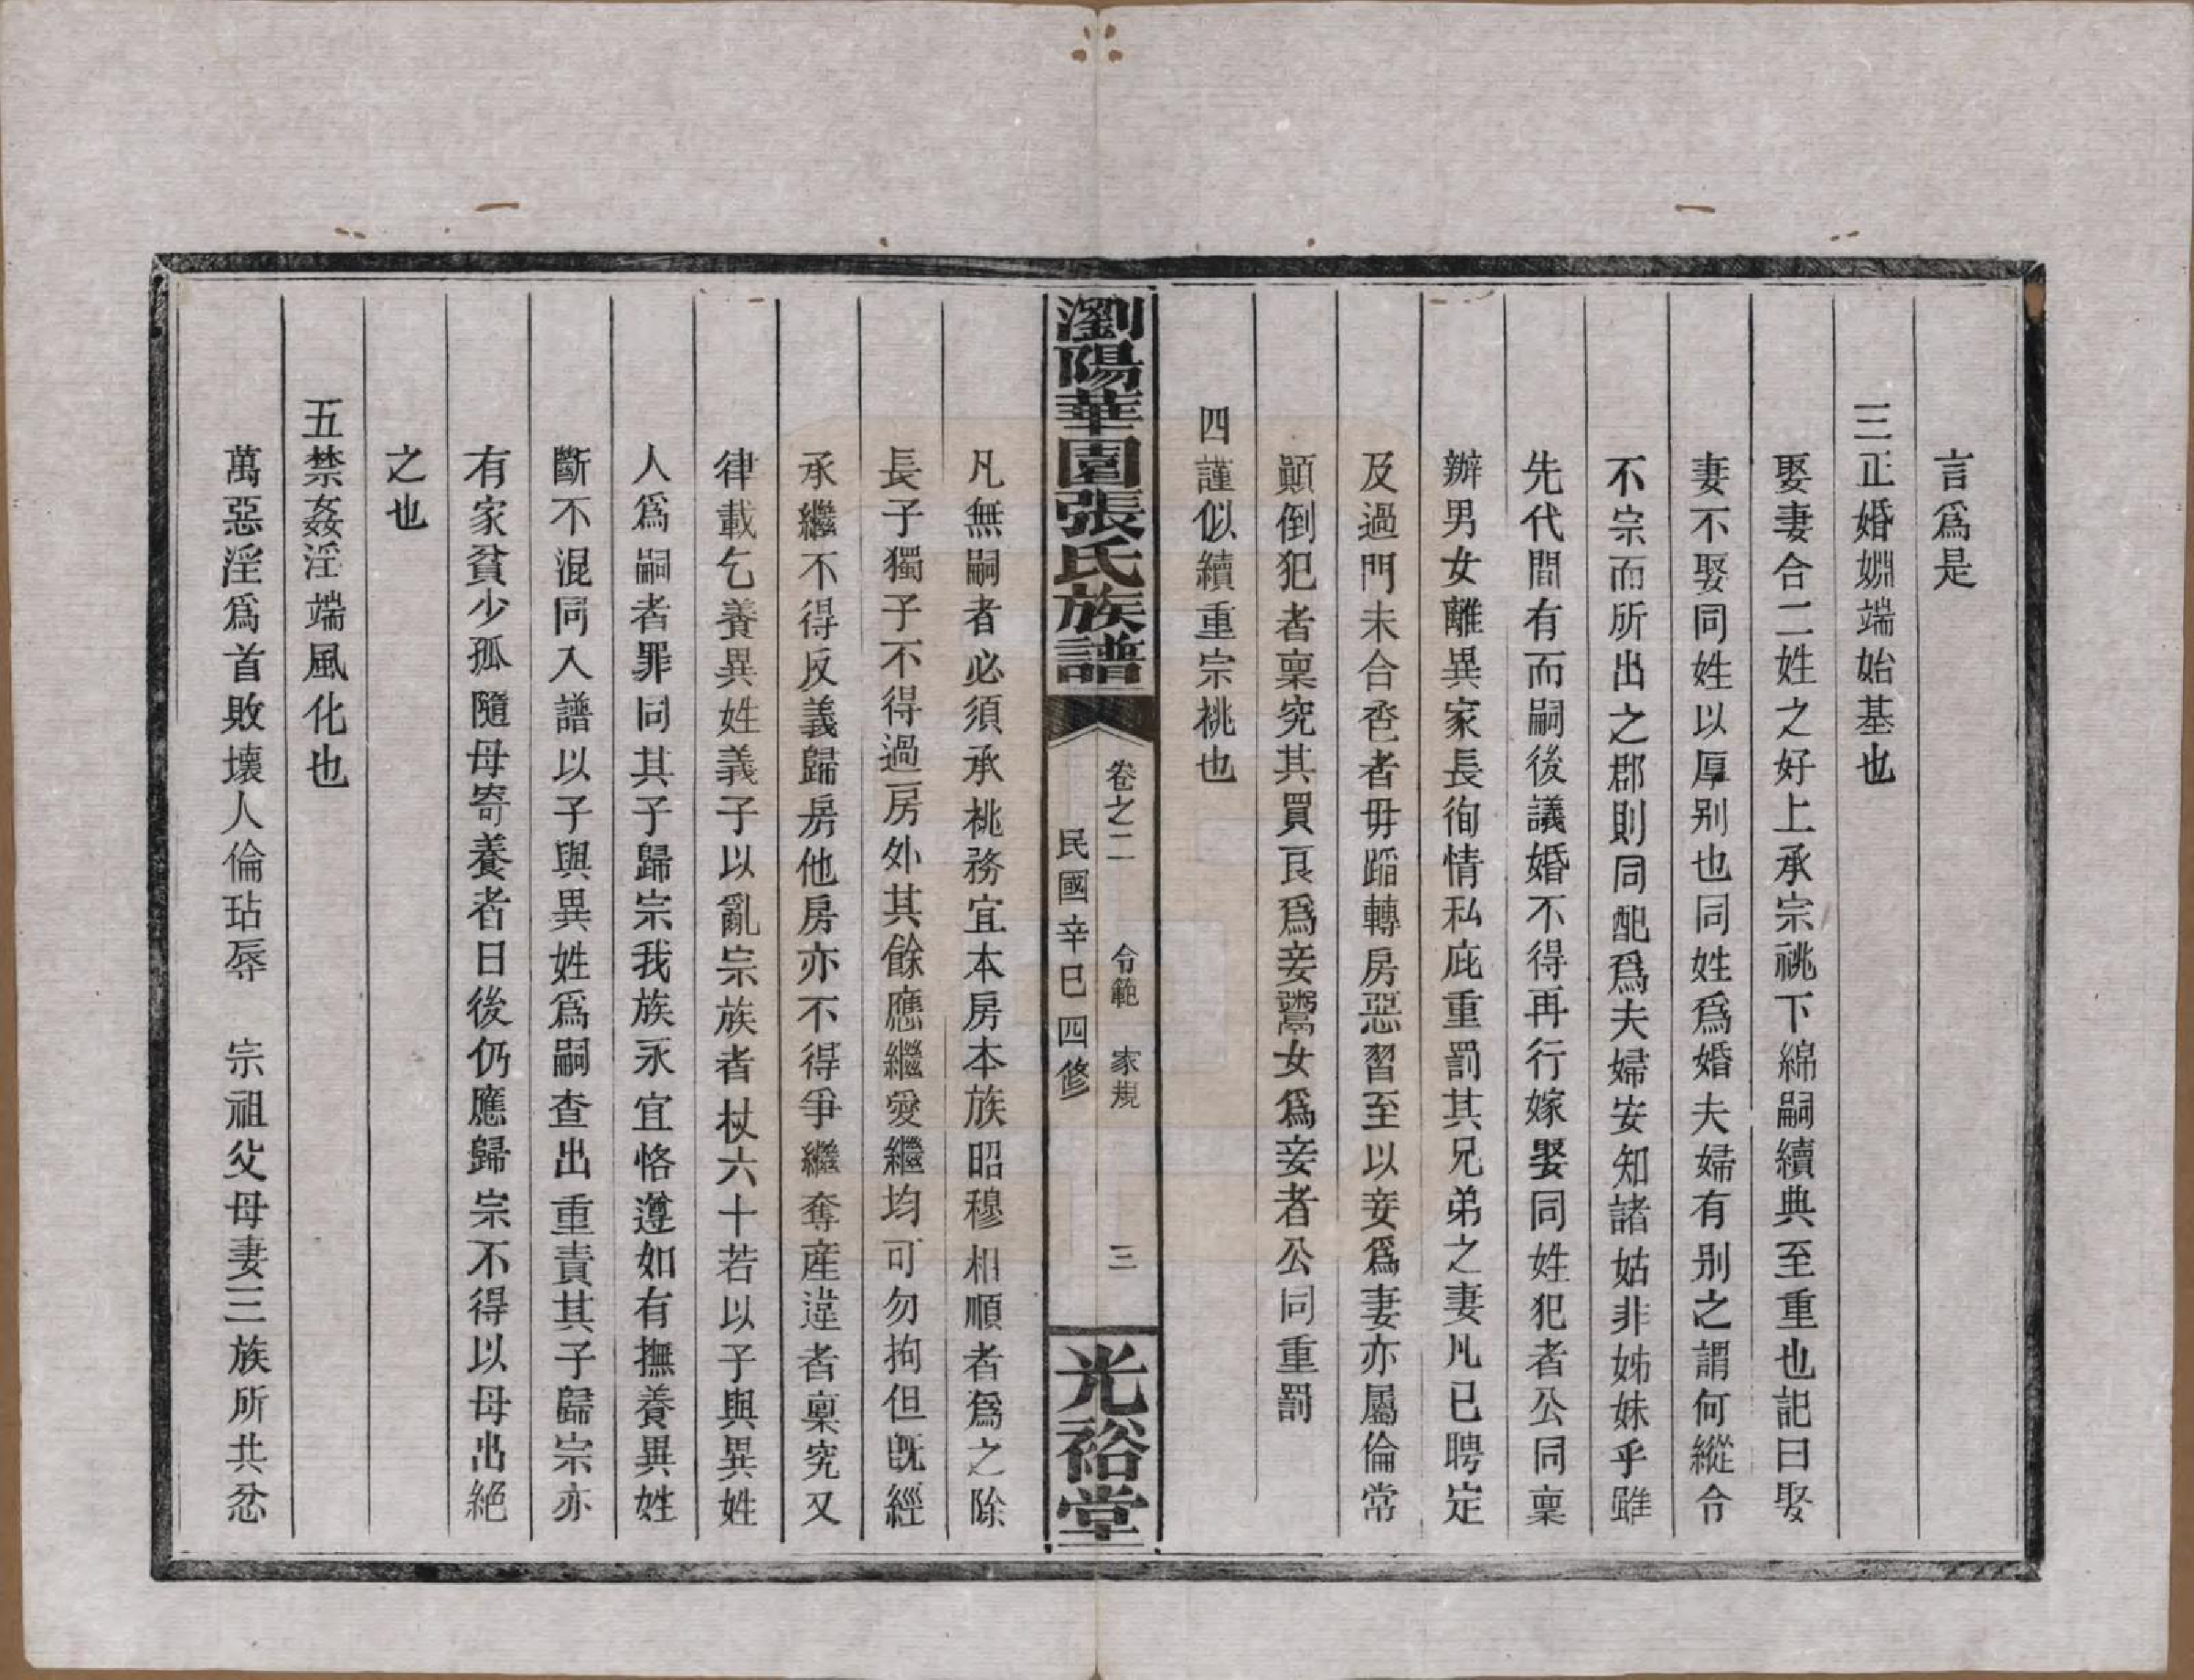 言爲是
三正婚姻端始基也
娶妻合二姓之好上承宗祧下綿嗣續典至重也記曰娶
妻不娶同姓以厚别也同姓爲婚夫婦有别之謂何縱令
不宗而所出之郡則同配爲夫婦安知諸姑非姊妹乎雖
先代間有而嗣後議婚不得再行嫁娶同姓犯者公同稟
辦男女離異家長徇情私庇重罰其兄弟之妻凡已聘定
及過門未合卺者毋蹈轉房惡習至以妾爲妻亦屬倫常
顛倒犯者稟究其買良爲妾鬻女爲妾者公同重罰
四謹似續重宗祧也
瀏陽華園張氏族譜
卷之二 令範 家規 三
民國辛巳四修
光裕堂
凡無嗣者必須承祧務宜本房本族昭穆相順者爲之除
長子獨子不得過房外其餘應繼愛繼均可勿拘但既經
承繼不得反義歸房他房亦不得爭繼奪産違者稟究又
律載乞養異姓義子以亂宗族者杖六十若以子與異姓
人爲嗣者罪同其子歸宗我族永宜恪遵如有撫養異姓
斷不混同入譜以子與異姓爲嗣查出重責其子歸宗亦
有家貧少孤隨母寄養者日後仍應歸宗不得以母出絕
之也
五禁姦淫端風化也
萬惡淫爲首敗壞人倫玷辱 宗祖父母妻三族所共忿